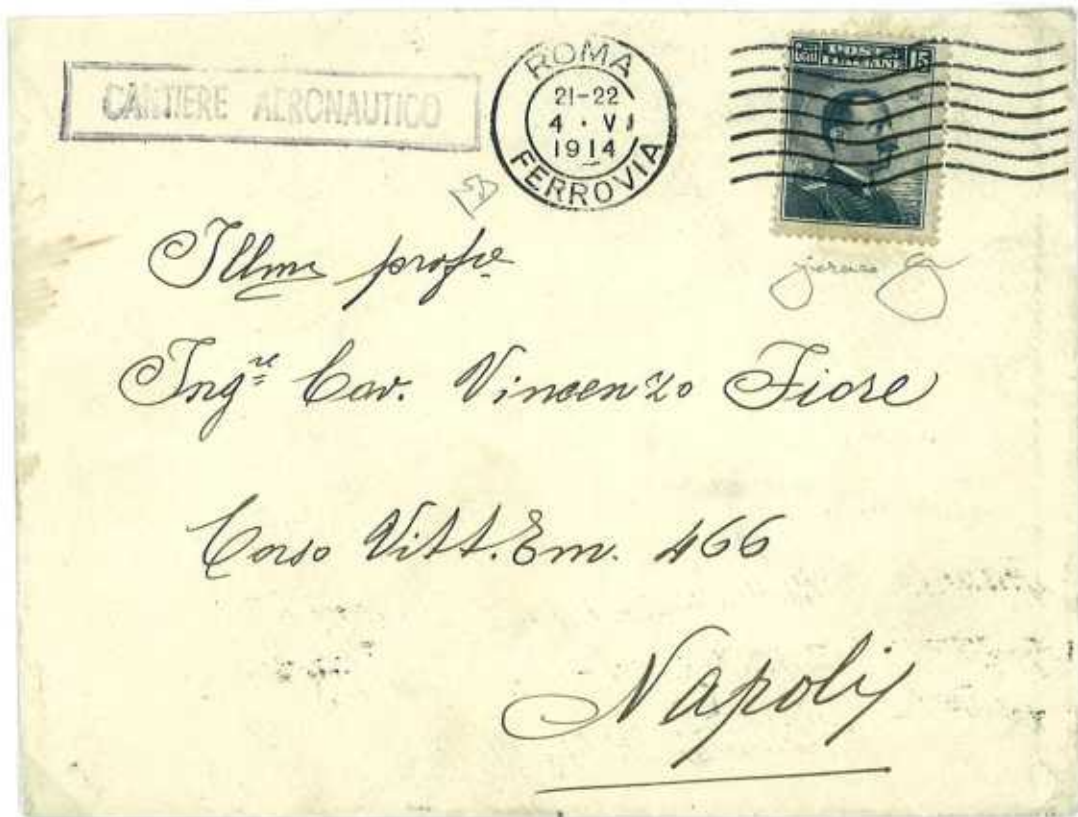 CANTIERE AERONAUTICO
ROMA
21-22
4 · VI
1914
FERROVIA
15
Illmo profre
Ingre Cav. Vincenzo Fiore
Corso Vitt. Em. 466
Napoli